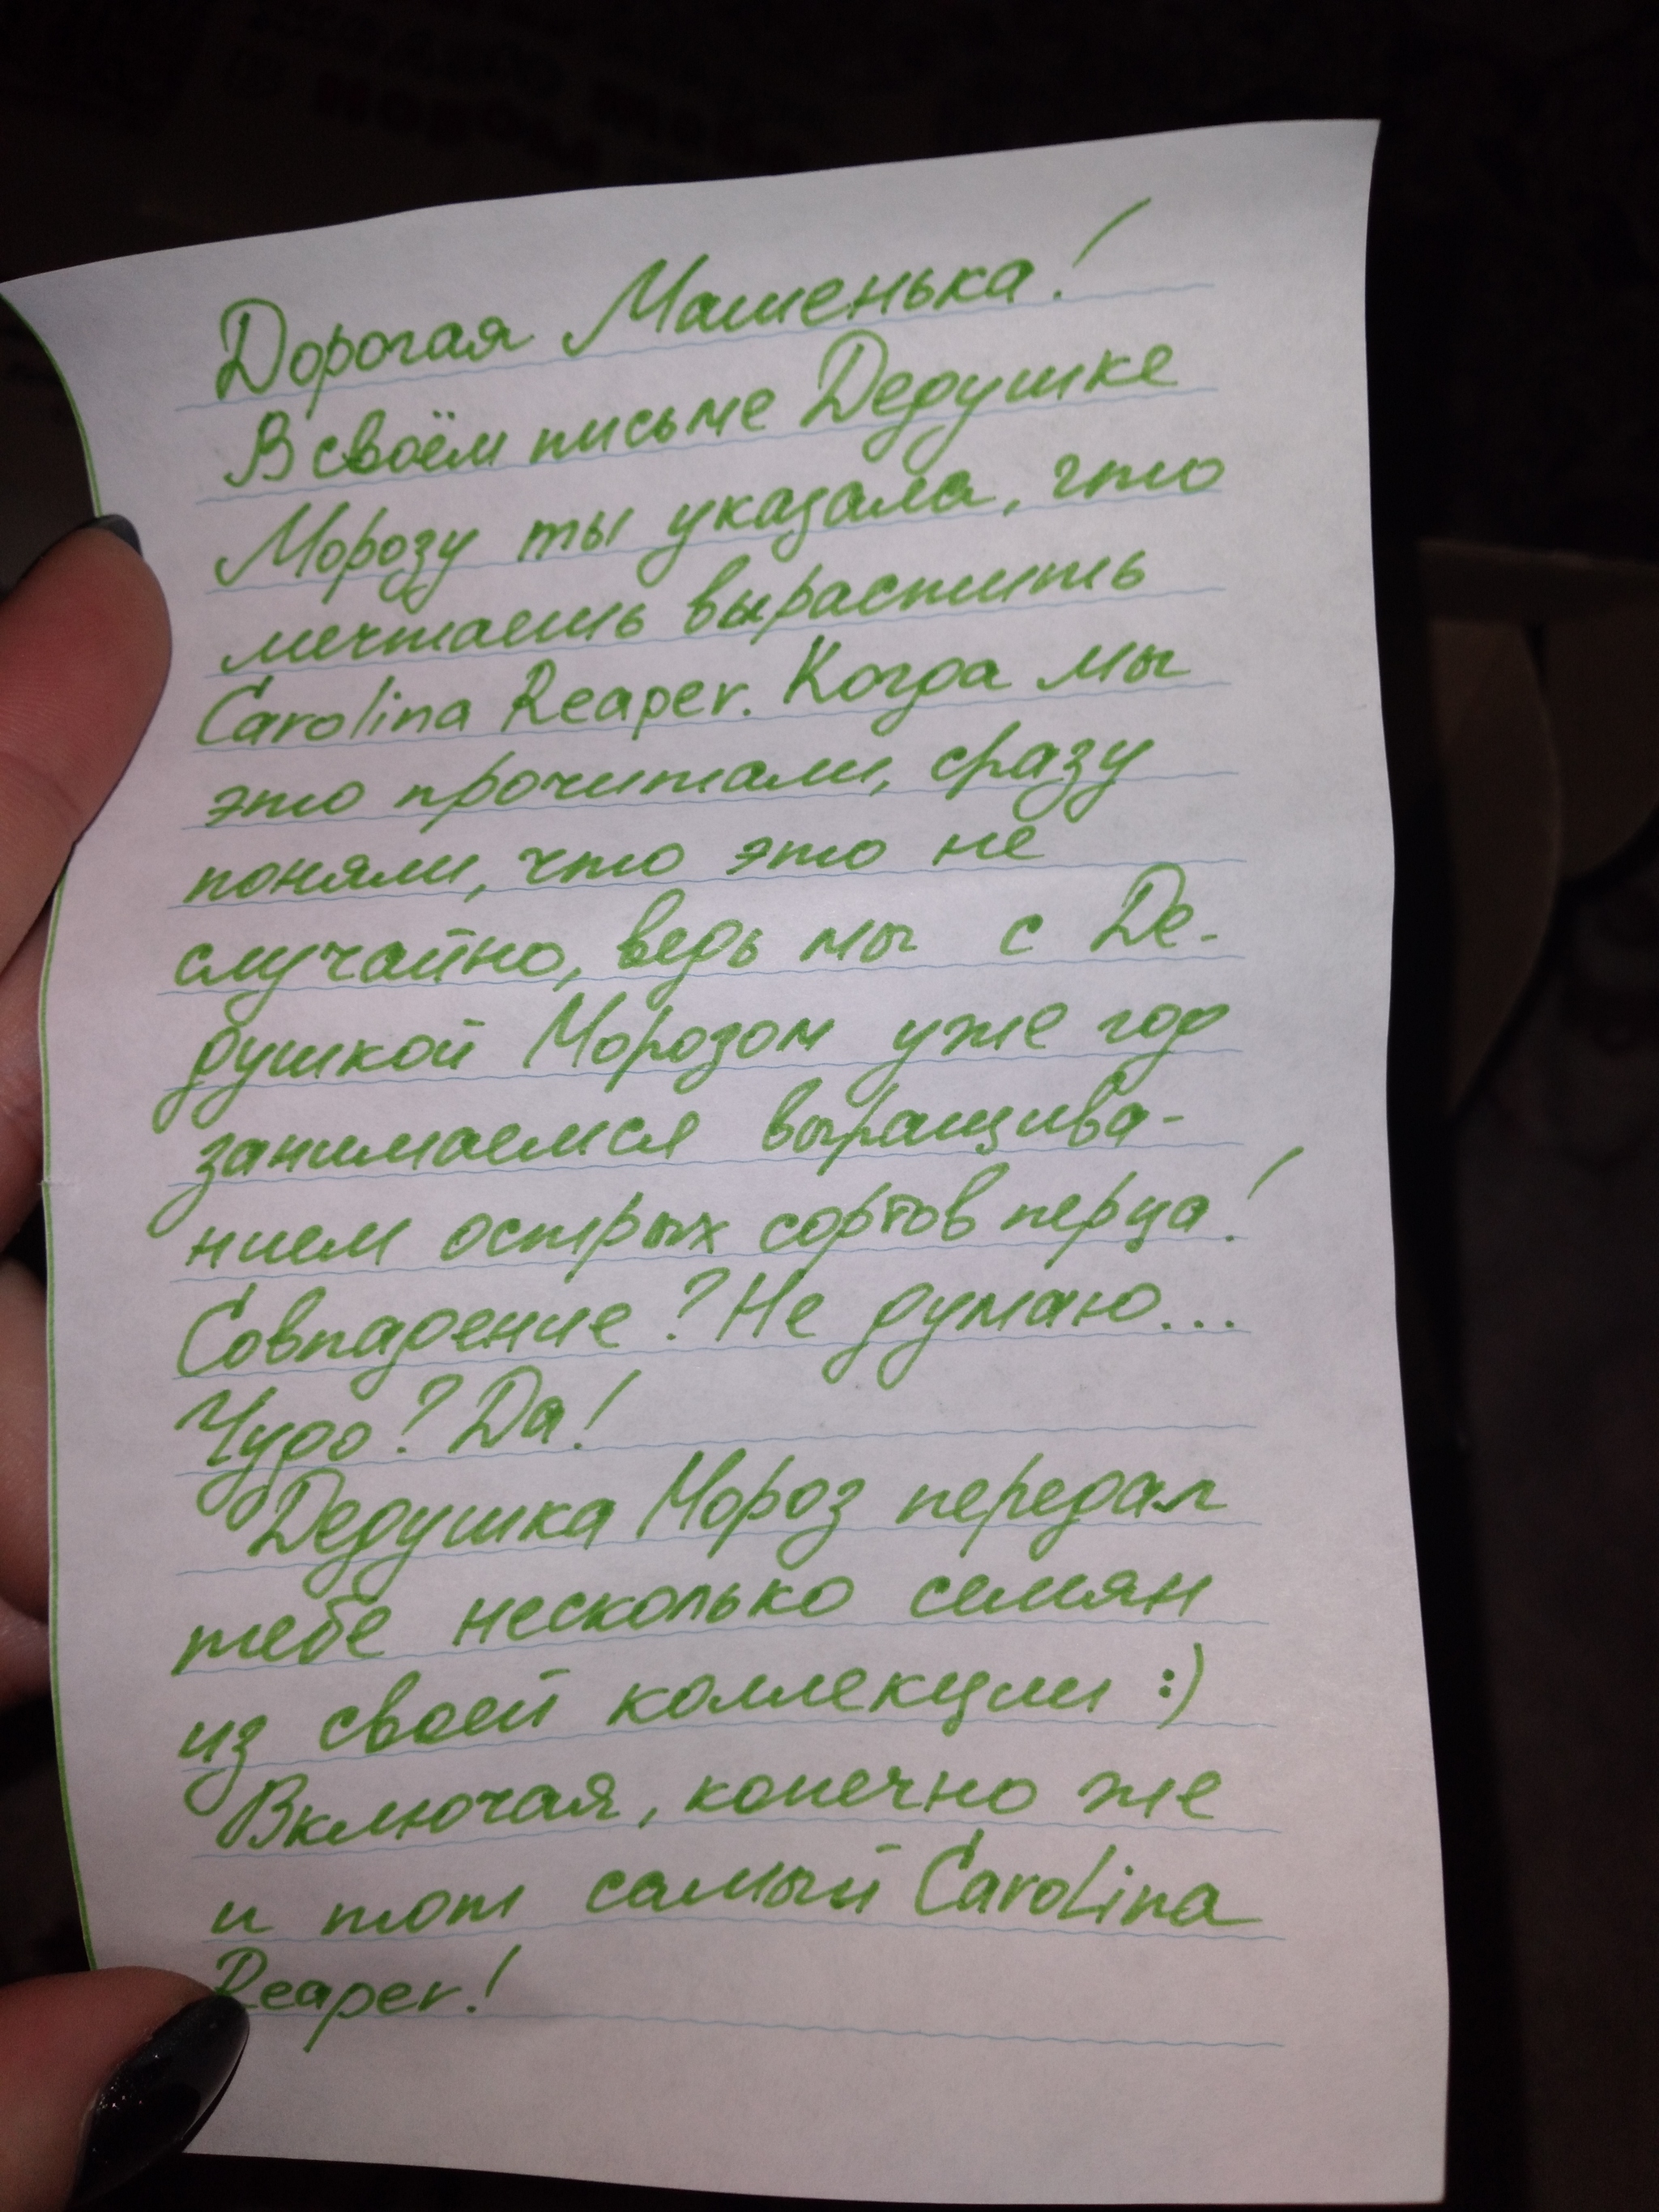 Дорогая Машенька!
В своём письме Дедушке
Морозу ты указала, что
мечтаешь вырастить
Carolina Reaper. Когда мы
это прочитали, сразу
поняли, что это не
случайно, ведь мы с Де-
душкой Морозом уже год
занимаемся выращива-
нием острых сортов перца!
Совпадение? Не думаю...
Чудо? Да!
Дедушка Мороз передал
тебе несколько семян
из своей коллекции :)
Включая, конечно же
и тот самый Carolina
Reaper!